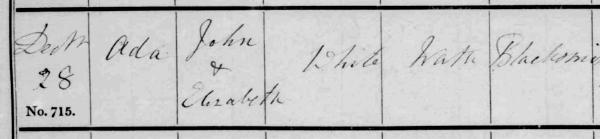 Decr
28
No. 715.
Ada
John
&
Elizabeth
White
Wath
Blacksmi